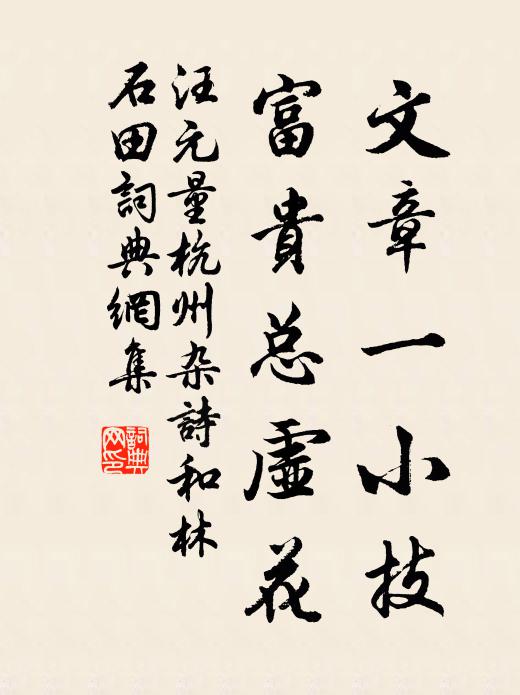 文章一小技
富貴总虛花
汪元量杭州杂詩和林
石田詞典網集
詞典网印